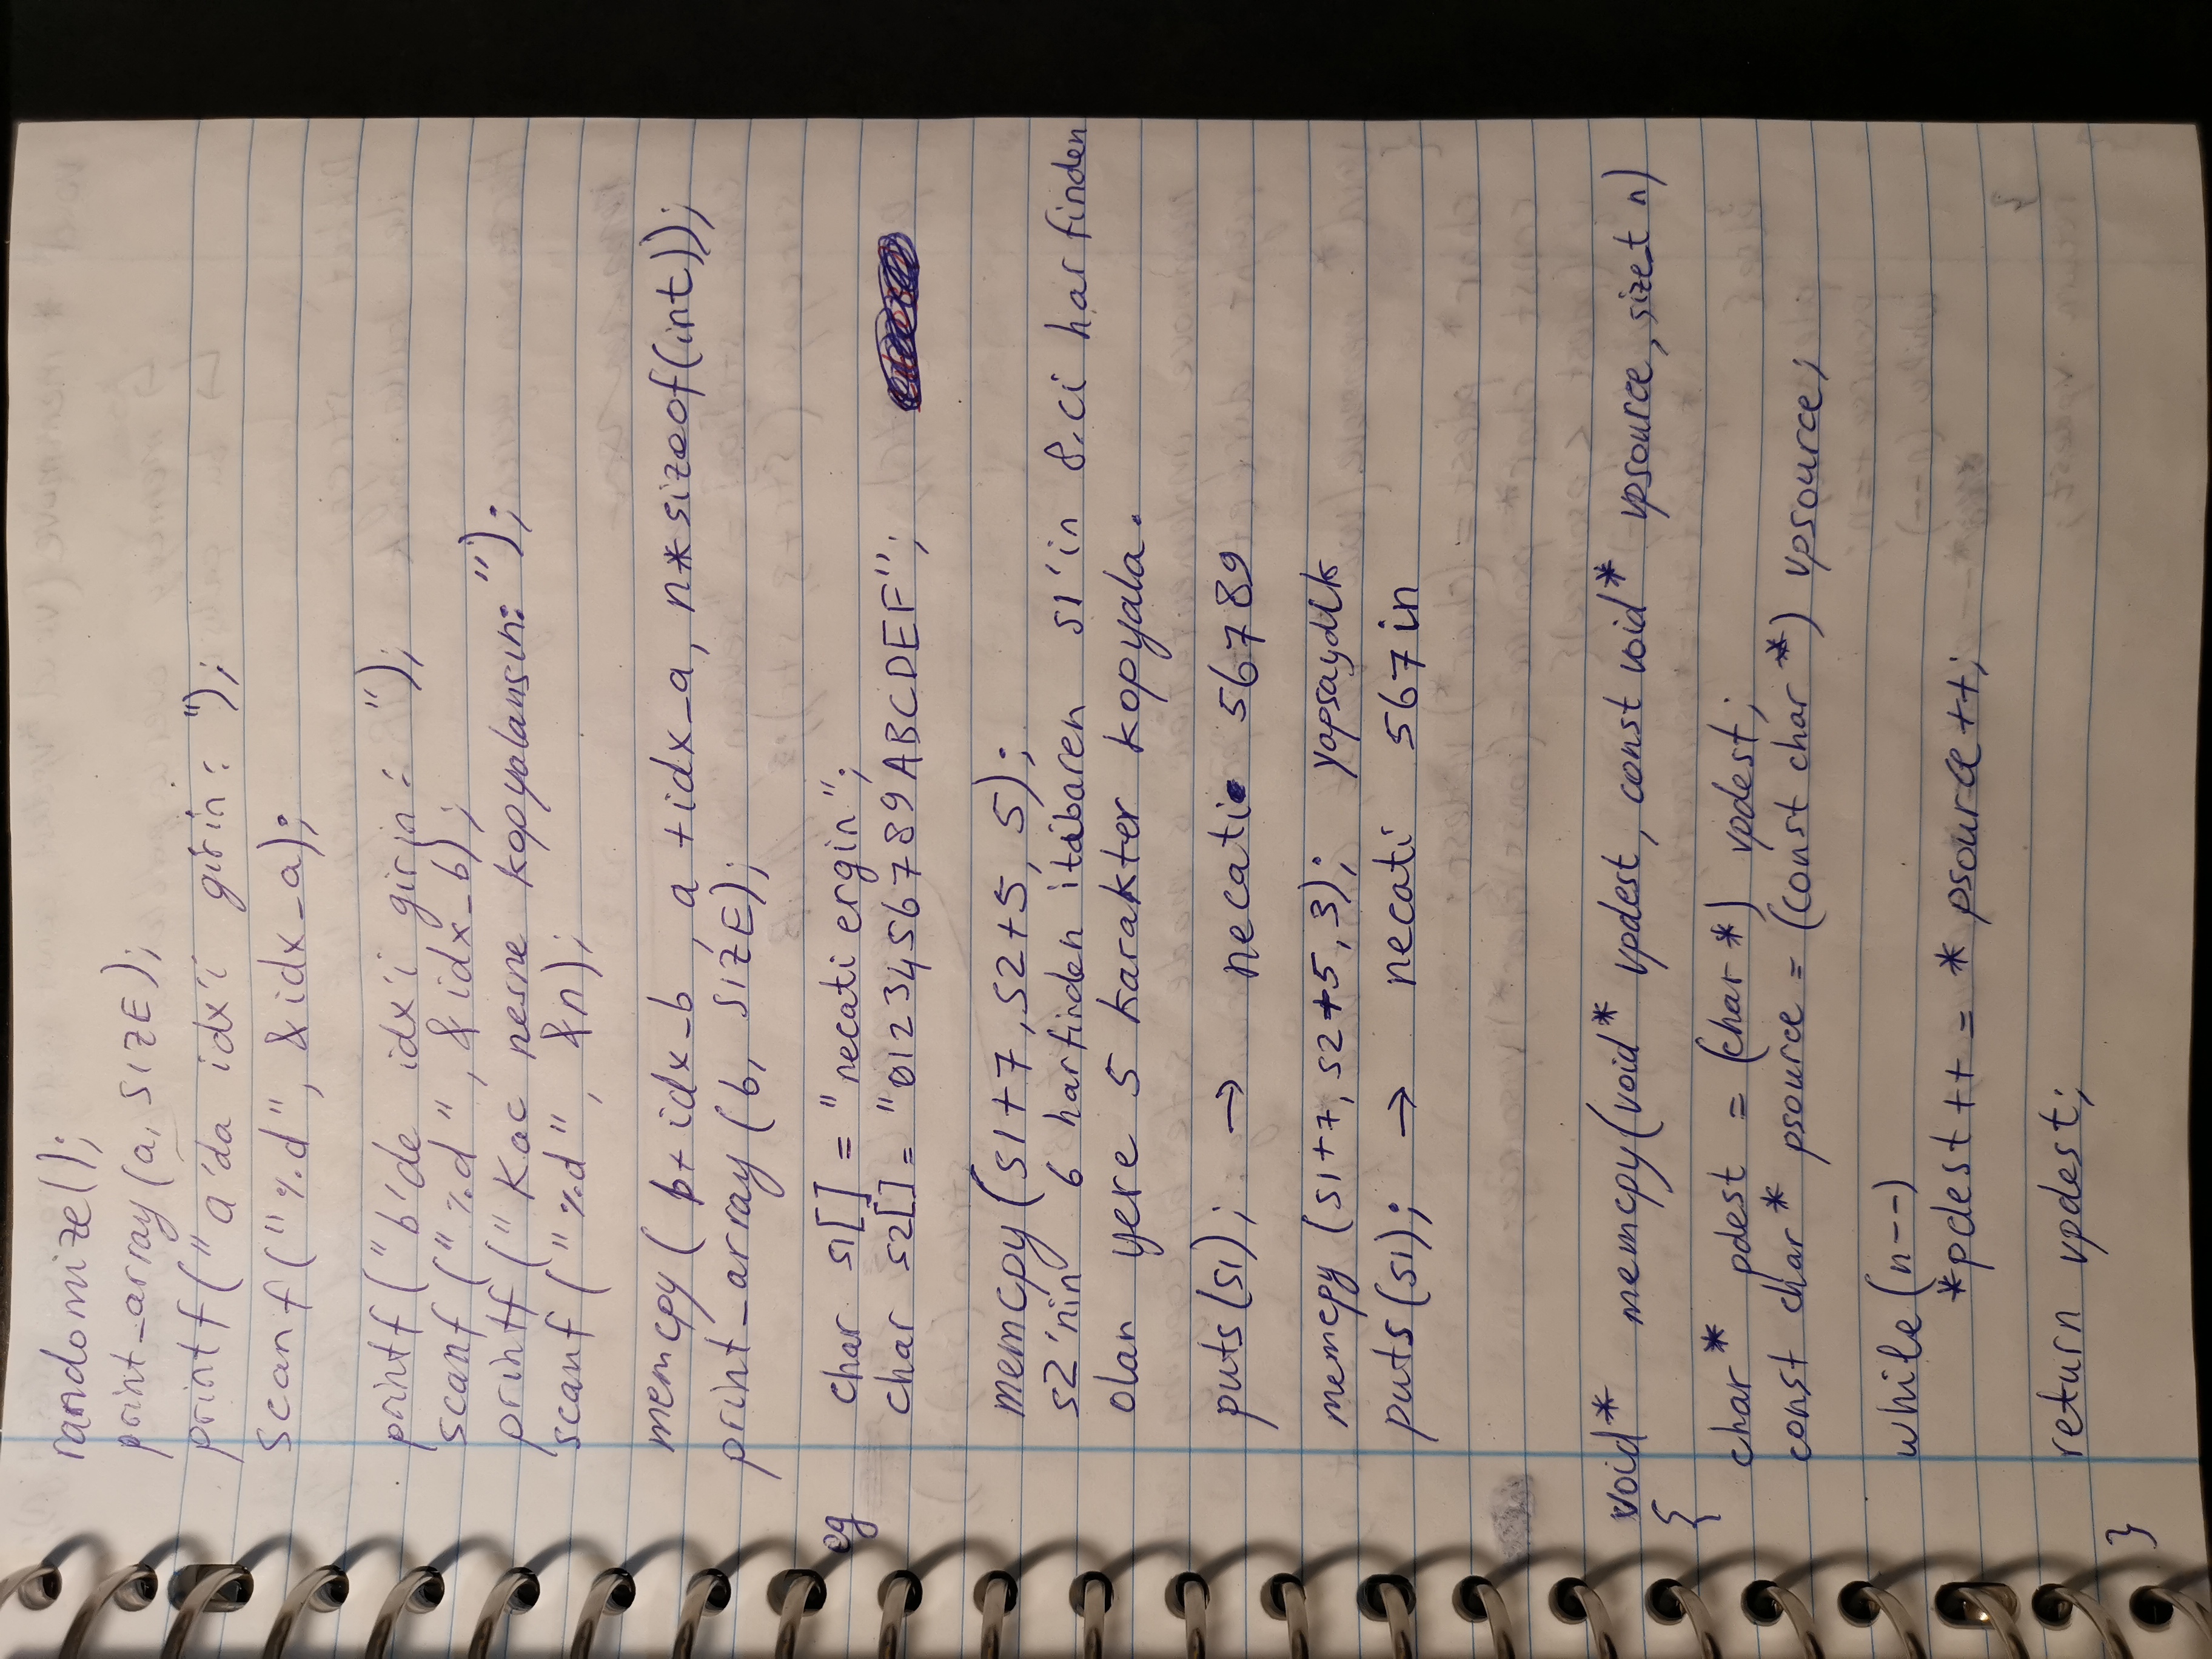 randomize();
print_array(a, SIZE);
printf("a'da idx'i girin: ");
scanf("%d", &idx_a);
printf("b'de idx'i girin: ");
scanf("%d", &idx_b);
printf("Kac nesne kopyalansın: ");
scanf("%d", &n);
memcpy(b+idx_b, a+idx_a, n*sizeof(int));
print_array(b, SIZE);
eg char s1[] = "necati ergin";
char s2[] = "0123456789ABCDEF";
memcpy(s1+7, s2+5, 5);
s2'nin 6 harfinden itibaren s1'in 8.ci harfinden
olan yere 5 karakter kopyala.
puts(s1); → necati 56789
memcpy(s1+7, s2+5, 3); yapsaydık
puts(s1); → necati 567in
void* memcpy(void* vpdest, const void* vpsource, size_t n)
{
char* pdest = (char*) vpdest;
const char* psource = (const char*) vpsource;
while(n--)
*pdest++ = *psource++;
return vpdest;
}